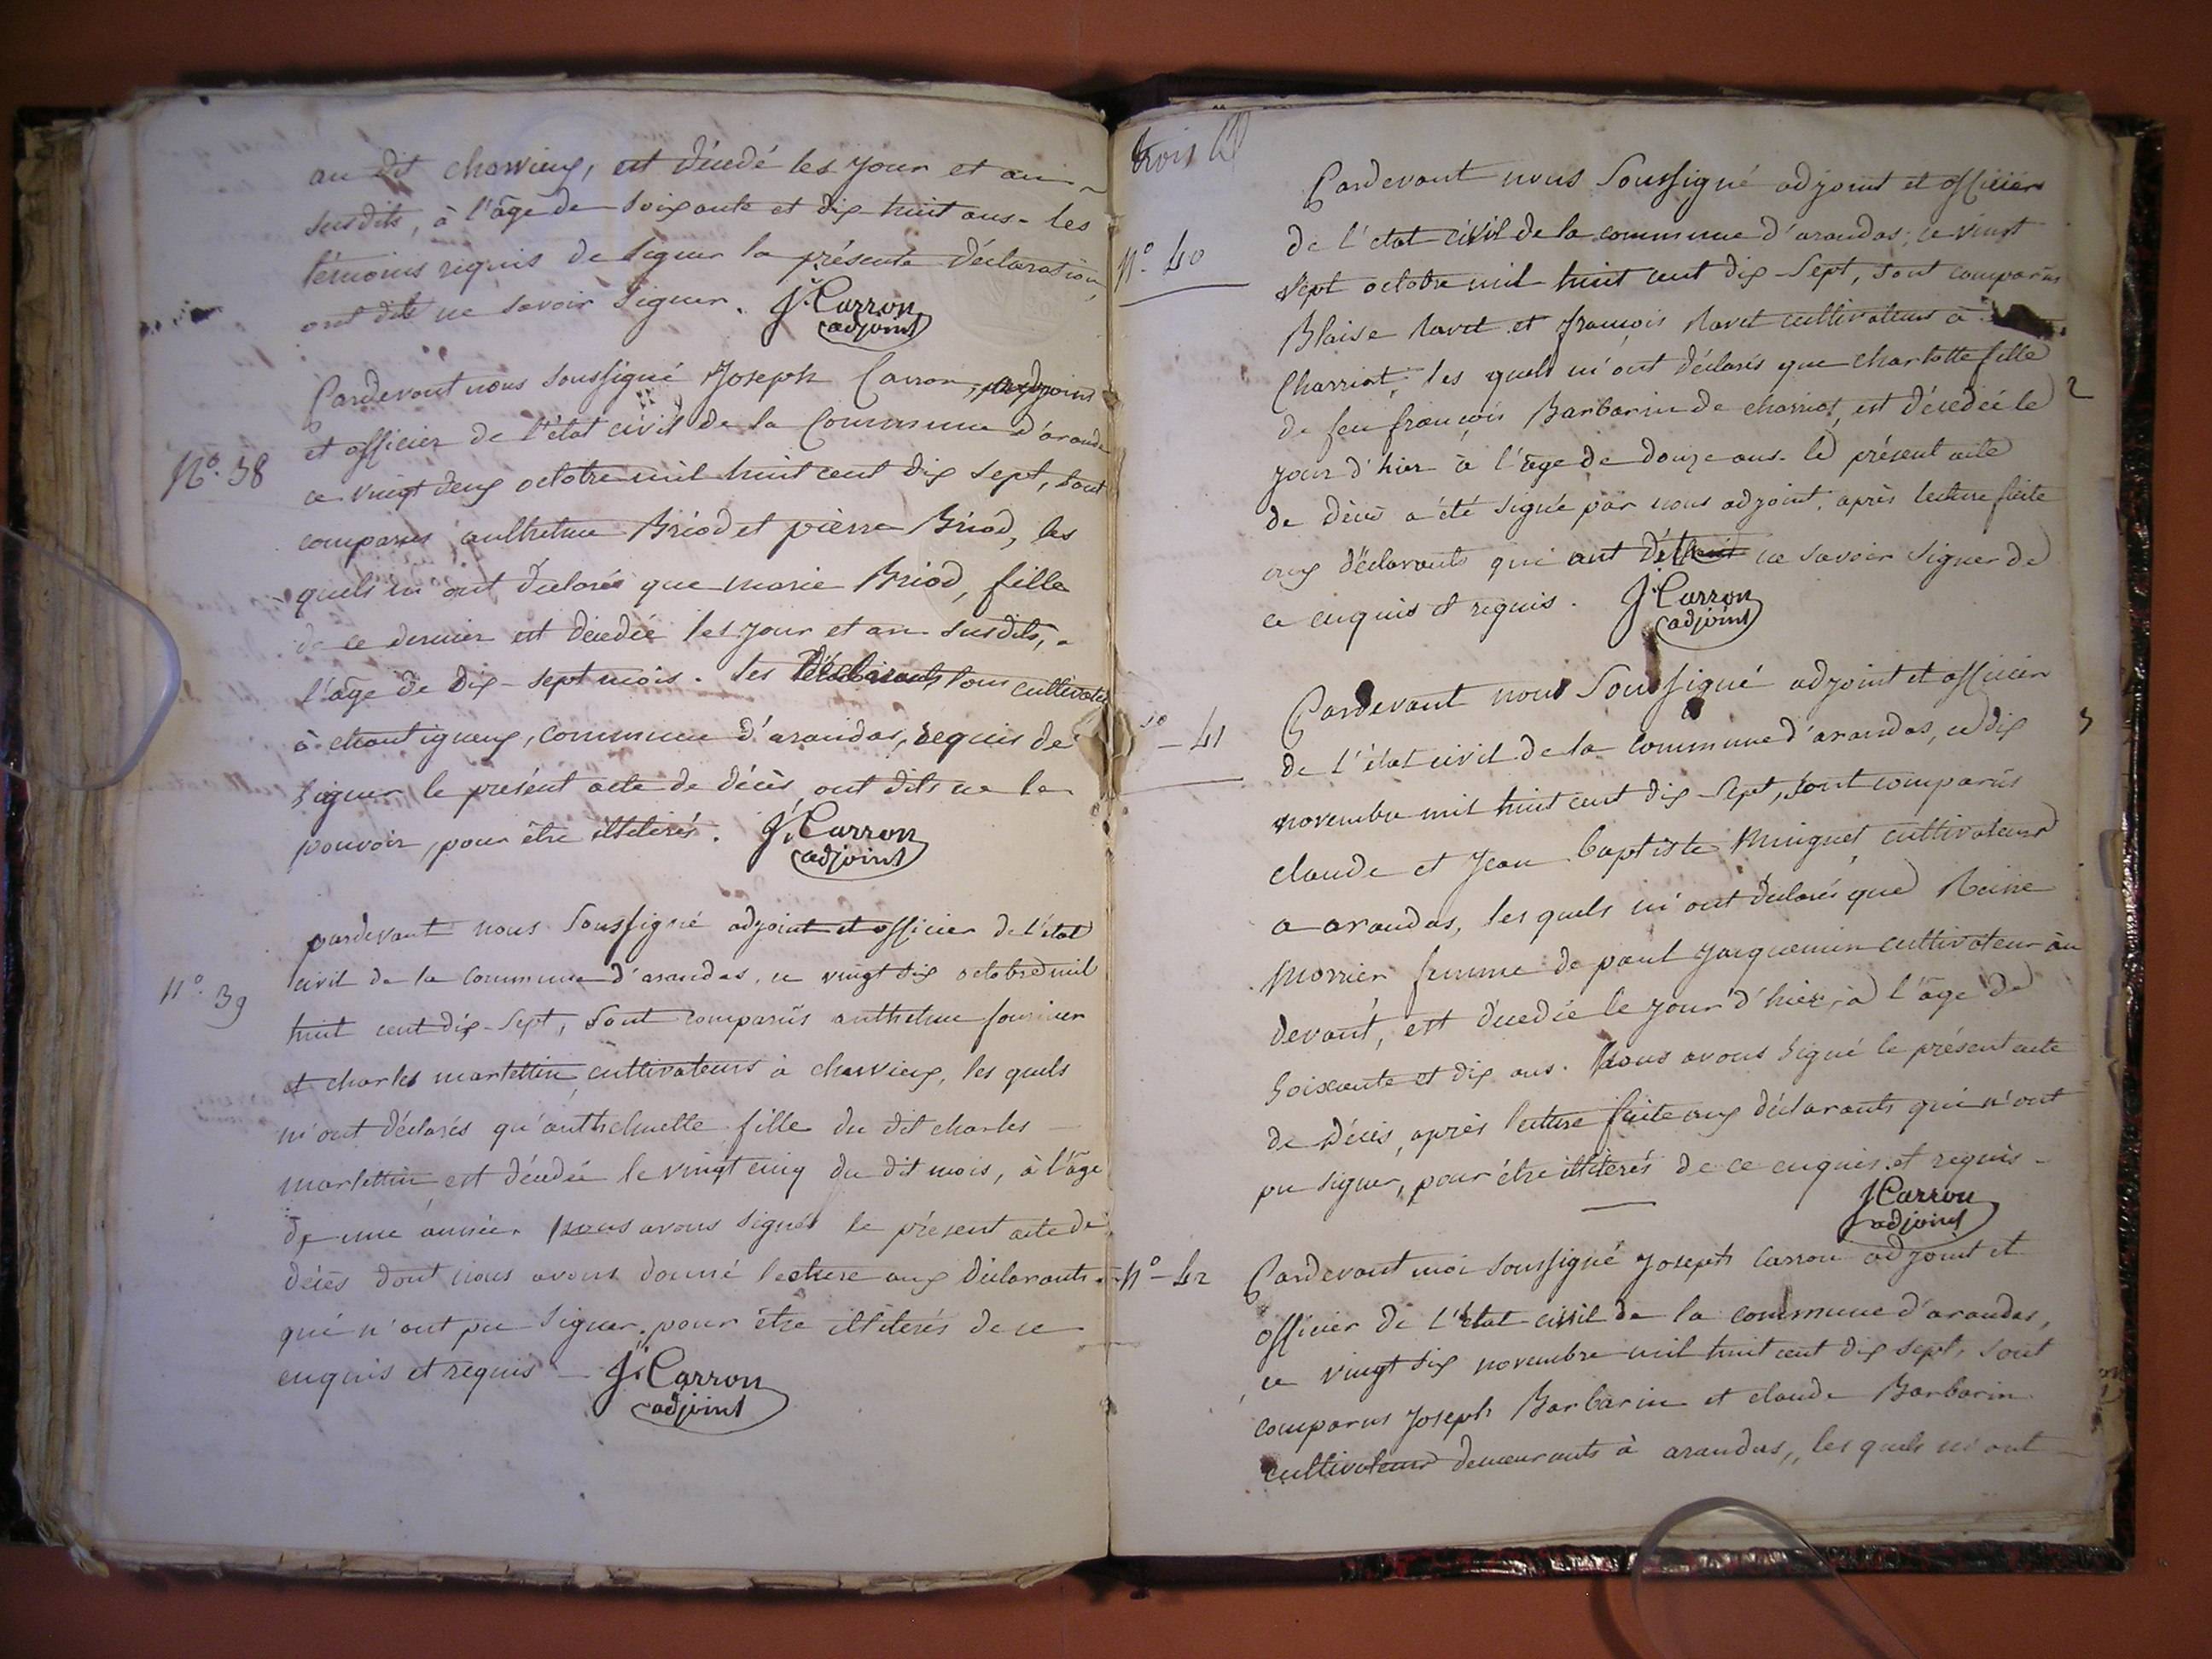 au dit charvieux, est décédé les jour et an
susdits, à l'âge de soixante et dix huit ans. les
témoins requis de signer la présente déclaration,
ont dits ne savoir signer. J.h Carron
adjoint
N.º 38
Pardevant nous soussigné Joseph Carron, adjoint
et officier de l'état civil de la Commune d'arandas
ce vingt deux octobre mil huit cent dix sept, sont
comparus anthelme Briod et pièrre Briod, les
quels m'ont déclarés que marie Briod, fille
de ce dernier est décédée les jour et an susdits, a
l'âge de dix-sept mois. les déclarants tous cultivateurs
à chantigneux, commune d'arandas, requis de
signer le présent acte de décès, ont dits ne le
pouvoir, pour être illiterés. J.h Carron
adjoint
N.º 39
pardevant nous soussigné adjoint et officier de l'état
civil de la commune d'arandas, ce vingt six octobre mil
huit cent dix-sept, sont comparûs anthelme
et charles martettin, cultivateurs à charvieux, les quels
m'ont déclarés qu'anthelmette fille du dit charles
martettin est décédée le vingt cinq du dit mois, à l'âge
de une année. Nous avons signés le présent acte de
décès dont nous avons donné lecture aux déclarants
qui n'ont pu signer, pour être illiterés de ce
enquis et requis - J.h Carron
adjoint
trois
N.º 40
Pardevant nous soussigné adjoint et officier
de l'état civil de la commune d'arandas, ce vingt
sept octobre mil huit cent dix-sept, sont comparûs
Blaise Ravet et françois Ravet cultivateurs à
Charriot, les quels m'ont déclarés que charlotte fille
de feu françois Barbarin de charriot, est décédée le
2
jour d'hier à l'âge de douze ans. le présent acte
de décès a été signé par nous adjoint, après lecture faite
aux déclarants qui ont dit ne savoir signer de
ce enquis et requis. J.h Carron
adjoint
- 41
Pardevant nous soussigné adjoint et officier
de l'état civil de la commune d'arandas, ce dix
novembre mil huit cent dix-sept, sont comparûs
claude et Jean baptiste Minguet, cultivateurs
a arandas, les quels m'ont déclarés que Reine
Morrier femme de paul Jacquemin cultivateur au
devant, est décédée le jour d'hier, à l'âge de
soixante et dix ans. Nous avons signé le présent acte
de décès, après lecture faite aux déclarants qui n'ont
pu signer, pour être illiterés de ce enquis et requis -
J.h Carron
adjoint
N.º - 42
Pardevant moi soussigné Joseph Carron adjoint et
officier de l'état civil de la commune d'arandas,
ce vingt six novembre mil huit cent dix sept, sont
comparus Joseph Barbarin et claude Barbarin
cultivateurs demeurants à arandas, les quels m'ont